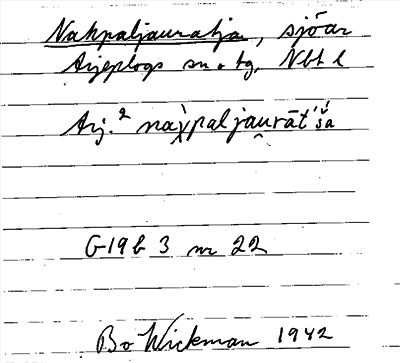 Nakpaljauratja, sjöar
Arjeplogs sn. o. tg. Nbt l
Arj.² naχ̀paljau̯rāt́'š́a
G19b 3 nr 22
Bo Wickman 1942